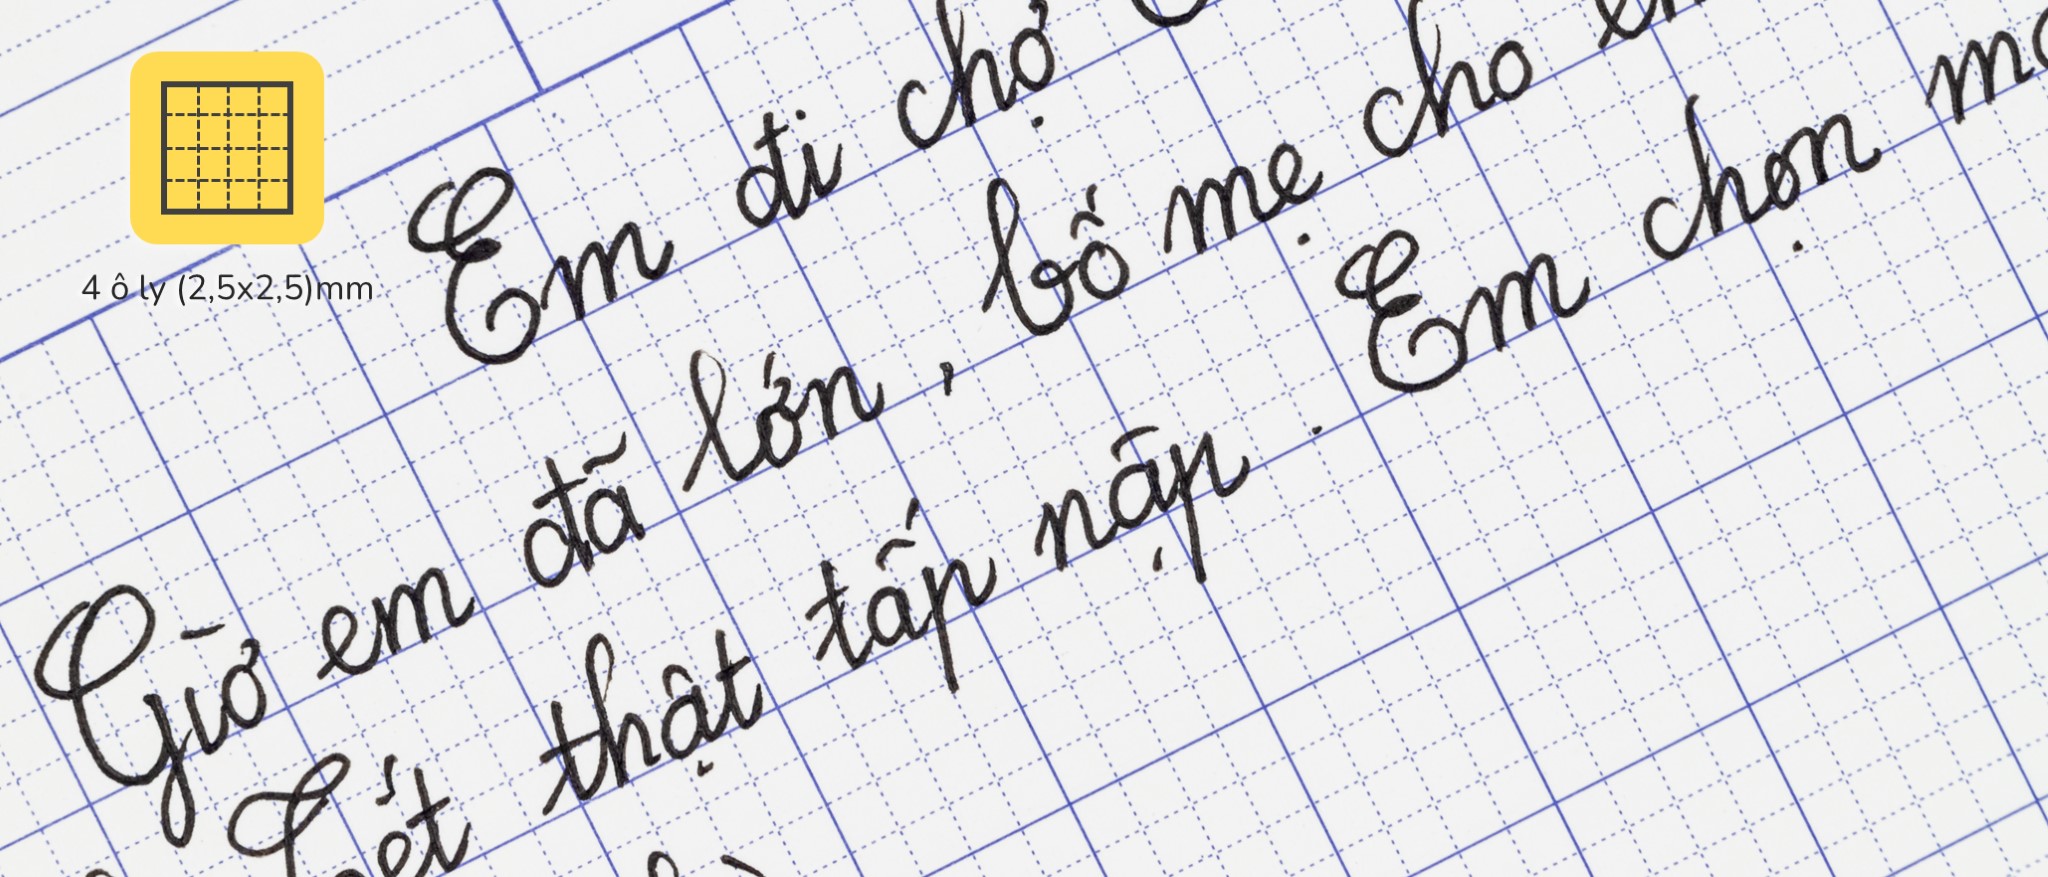 4 ô ly (2,5x2,5)mm
Em đi chợ
Giờ em đã lớn, bố mẹ cho
Tết thật tấp nập. Em chọn